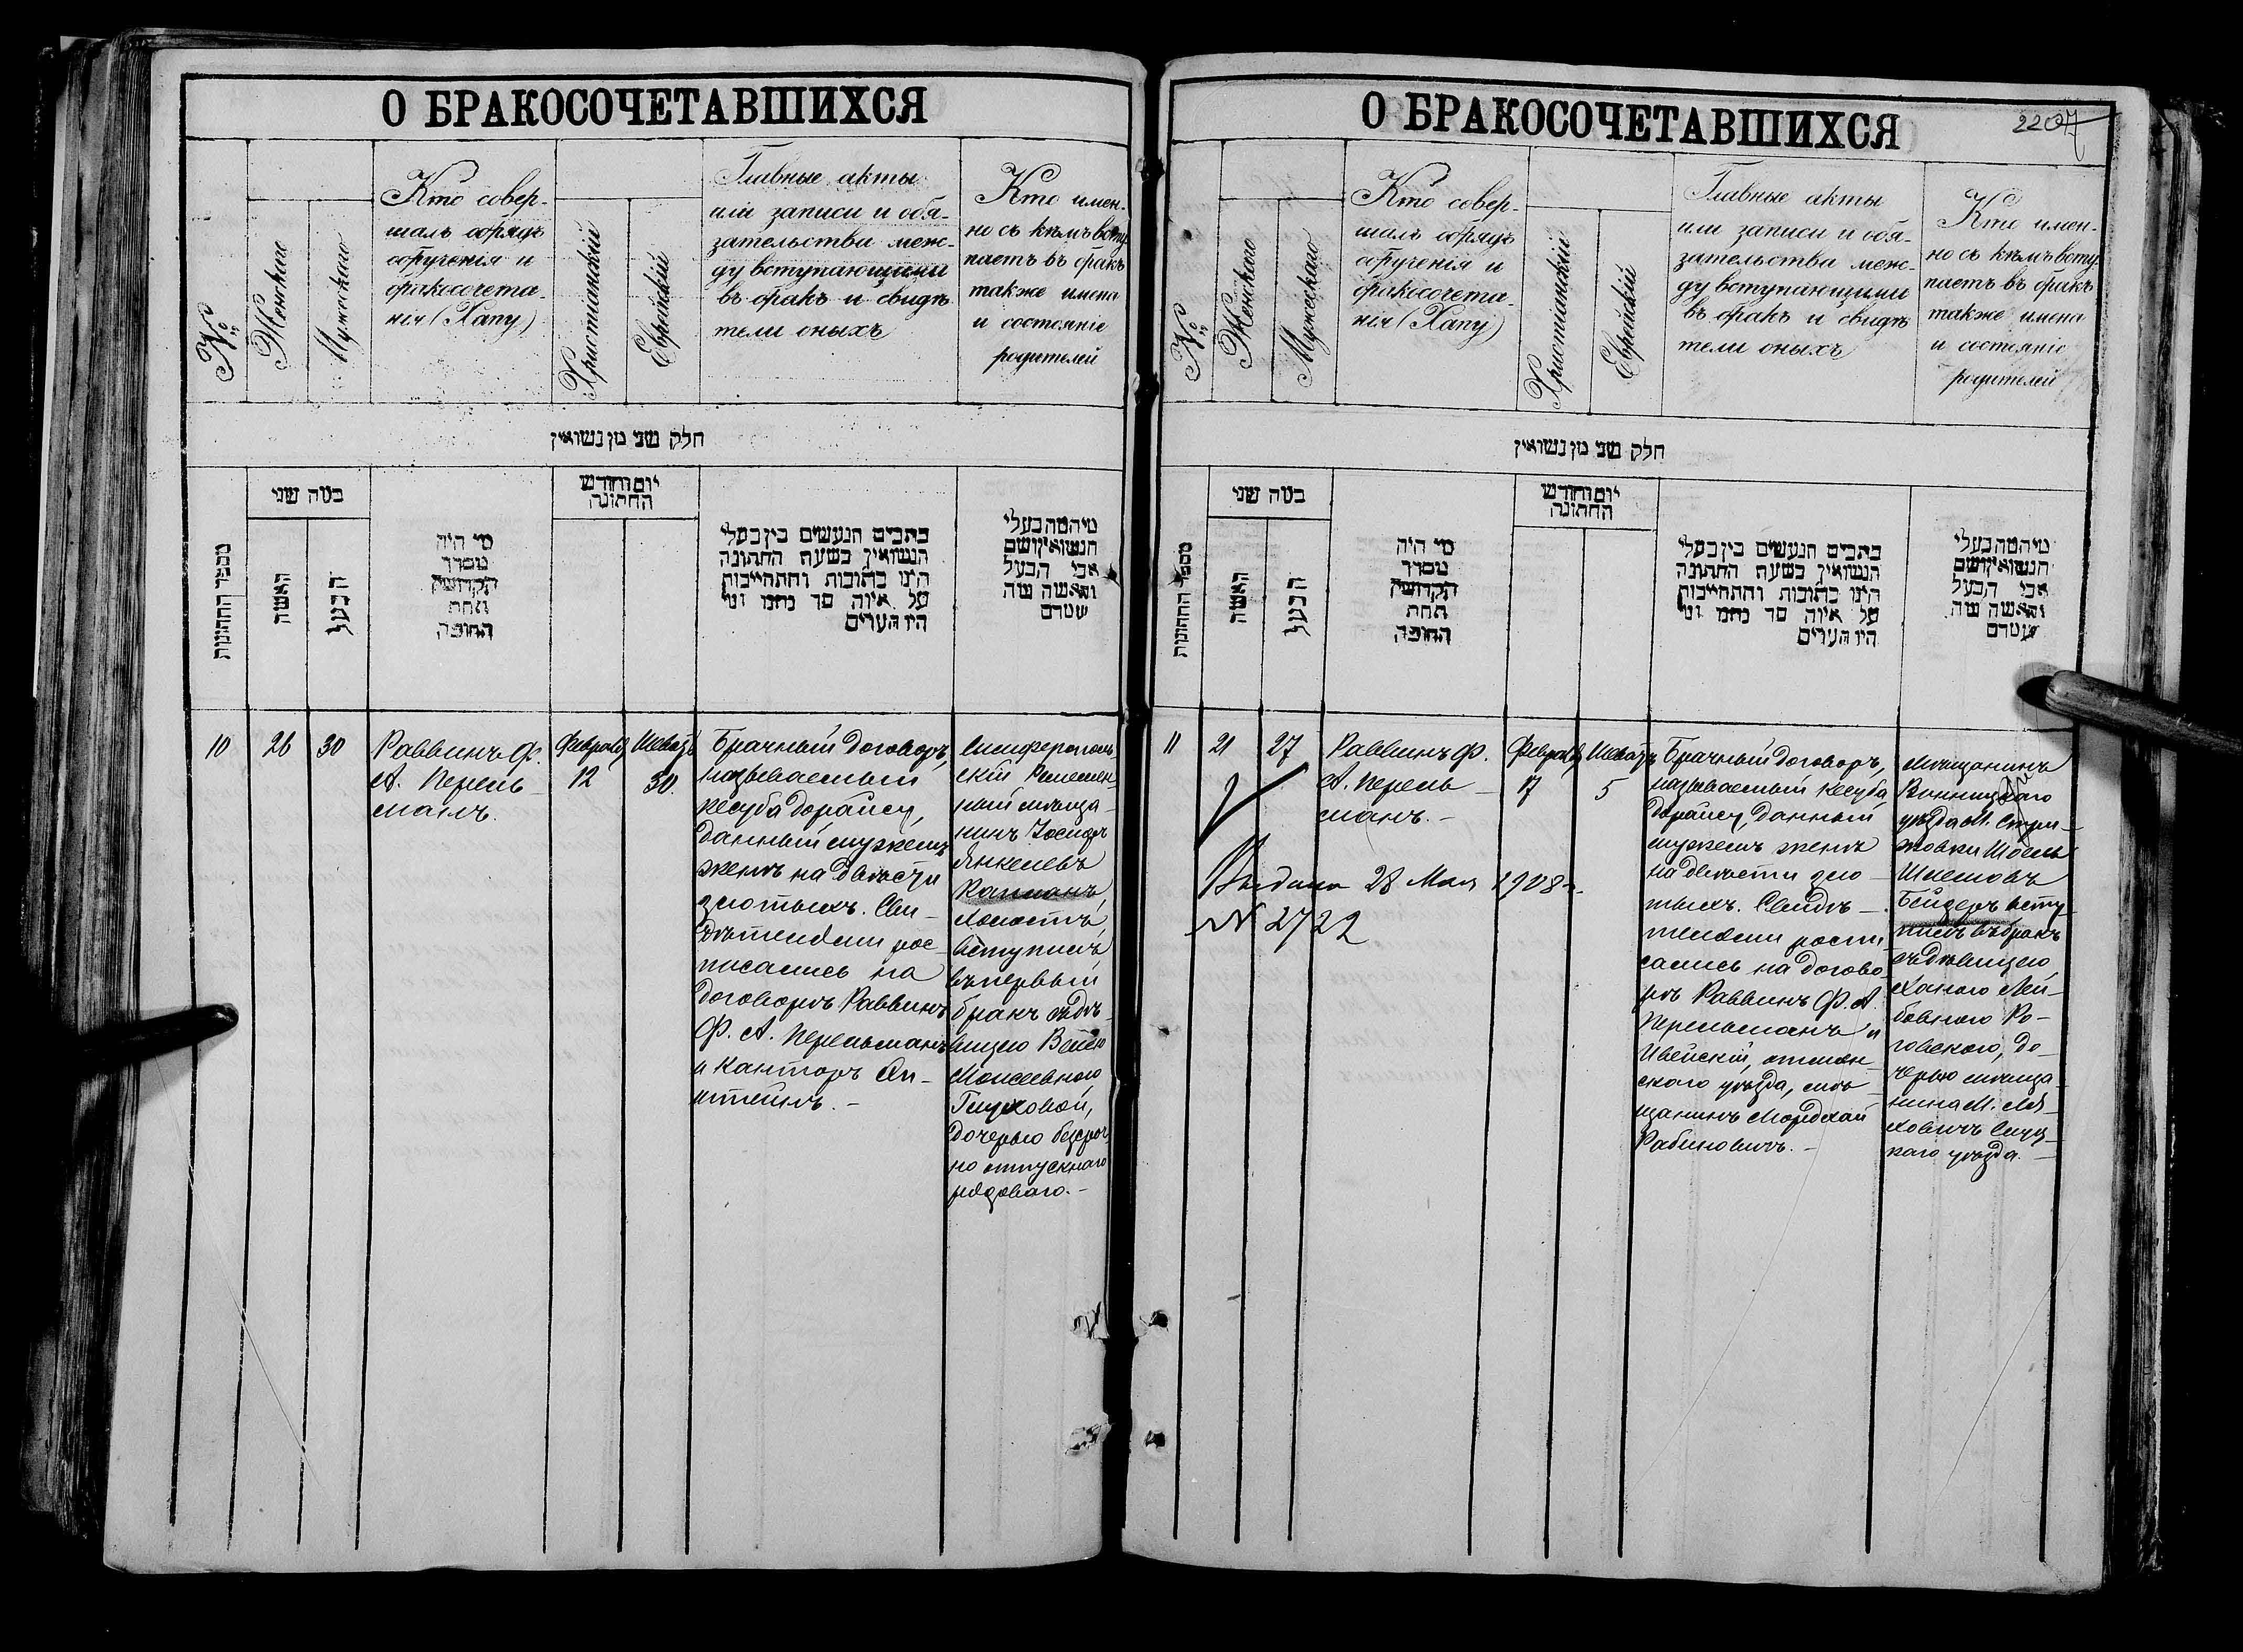 О БРАКОСОЧЕТАВШИХСЯ
№
Женскаго
Мужескаго
Кто совер-
шалъ обрядъ
обрученія и
бракосочета-
нія (Хапу)
Христіанскій
Еврейскій
Главные акты
или записи и обя-
зательства меж-
ду вступающими
въ бракъ и свидѣ
тели оныхъ
Кто имен-
но съ кѣмъ всту
паетъ въ бракъ
также имена
и состояніе
родителей
חלק שני מן נשואין
מספר החתונות
במה שני
האשה
הבעל
מי היה
מסדר
הקדושין
תחת
החופה
יום וחודש
החתונה
כתבים הנעשים בין בעלי
הנשואין בשעת החתונה
הינו כתובות והתחייבות
על איזה סך
היו העדים
אבי הבעל
והאשה
10
26
30
Раввинъ Ф.
А. Перель-
манъ.
Февраля
12
Шевазъ
30.
Брачный договоръ,
называемый
кесуба дорайсу,
данный мужемъ
женѣ на двѣсти
золотыхъ. Сви-
дѣтелями рос
писались на
договорѣ Раввинъ
Ф. А. Перельманъ
и Канторъ Эп-
штейнъ. -
Симферополь
скій Ремеслен-
ный мѣща-
нинъ Іосифъ
Янкелевъ
Капланъ,
холостъ,
вступилъ
въ первый
бракъ съ дѣ-
вицею Вейлею
Моисеевною
Глуховой,
дочерью безсроч
но отпускнаго
рядоваго. -
О БРАКОСОЧЕТАВШИХСЯ
2207
№
Женскаго
Мужескаго
Кто совер-
шалъ обрядъ
обрученія и
бракосочета-
нія (Хапу)
Христіанскій
Еврейскій
Главные акты
или записи и обя-
зательства меж-
ду вступающими
въ бракъ и свидѣ
тели оныхъ
Кто имен-
но съ кѣмъ всту
паетъ въ бракъ
также имена
и состояніе
родителей
חלק שני מן נשואין
מספר החתונות
במה שני
האשה
הבעל
מי היה
מסדר
הקדושין
תחת
החופה
יום וחודש
החתונה
כתבים הנעשים בין בעלי
הנשואין בשעת החתונה
הינו כתובות והתחייבות
על איזה סך
היו העדים
אבי הבעל
והאשה
11
21
27
Раввинъ Ф.
А. Перель-
манъ. -
Февраля
17
Шевазъ
5
Выдана 28 Мая 1908 г.
№ 2722
Брачный договоръ,
называемый кесуба
дорайсу, данный
мужемъ женѣ
на двѣсти золо-
тыхъ. Свидѣ-
телями распи
сались на догово
рѣ Раввинъ Ф. А.
Перельманъ и
Ивейскій, ошмян-
скаго уѣзда, мѣ-
щанинъ Мордхай
Рабиновичъ. -
Мѣщанинъ
Винницкаго
уѣзда М. Стри-
жовки Шоель
Шлемовъ
Бейдеръ всту-
пилъ въ бракъ
съ дѣвицею
Ханою Лей-
бовною Ро-
говскою, до-
черью мѣща-
нина М. Ля-
ховичъ Слуц-
каго уѣзда. -